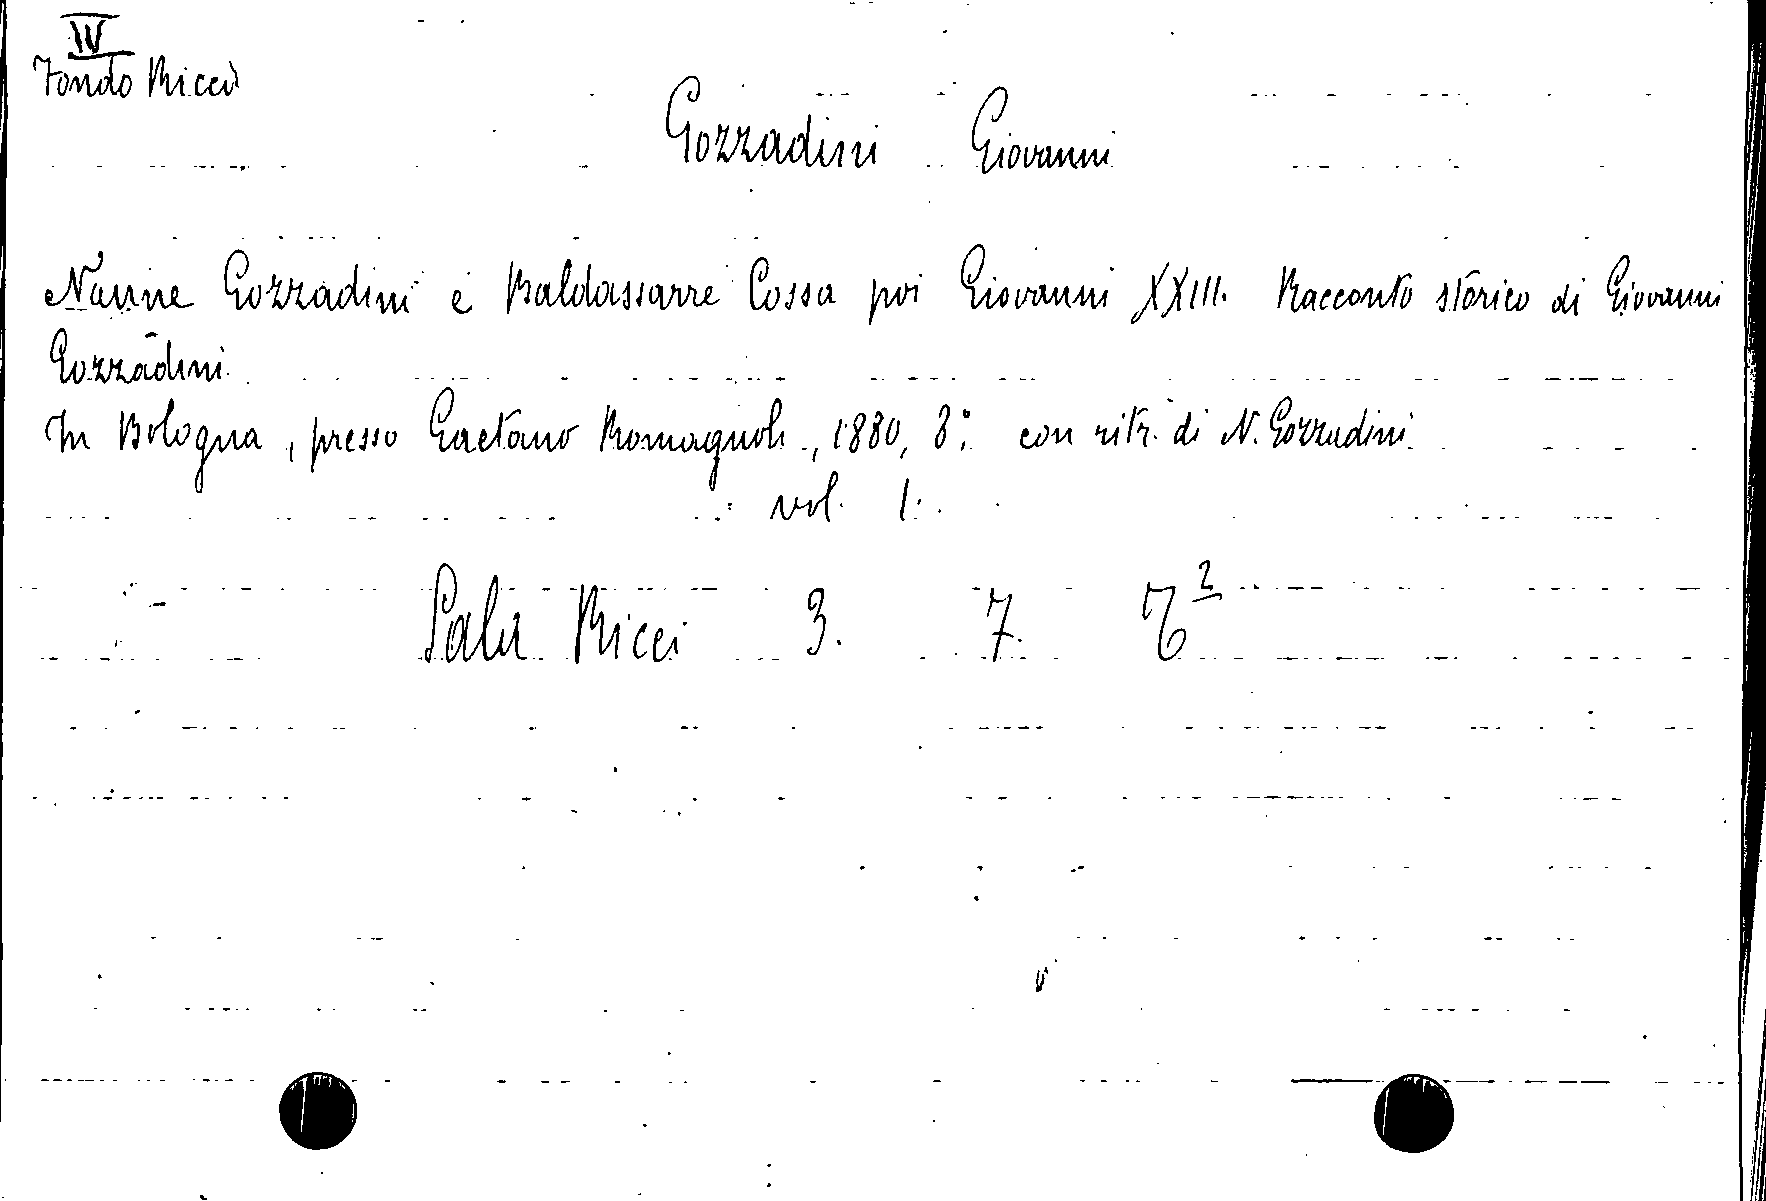 IV
Fondo Ricci
Gozzadini Giovanni
Nanne Gozzadini e Baldassarre Cossa poi Giovanni XXIII. Racconto storico di Giovanni
Gozzadini
In Bologna, presso Gaetano Romagnoli, 1880, 8º con ritr. di N. Gozzadini
vol. 1.
Sala Ricci 3. 7.